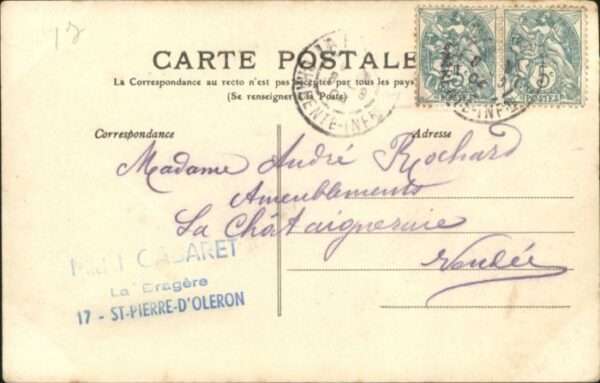 17
CARTE POSTALE
La Correspondance au recto n'est pas acceptée par tous les pays
(Se renseigner à la Poste)
Correspondance
Adresse
Madame André Rochard
Ameublements
La Châtaigneraie
Vendée
CABARET
La Dragère
17 - ST-PIERRE-D'OLERON
ENTE-INF
5
POSTES